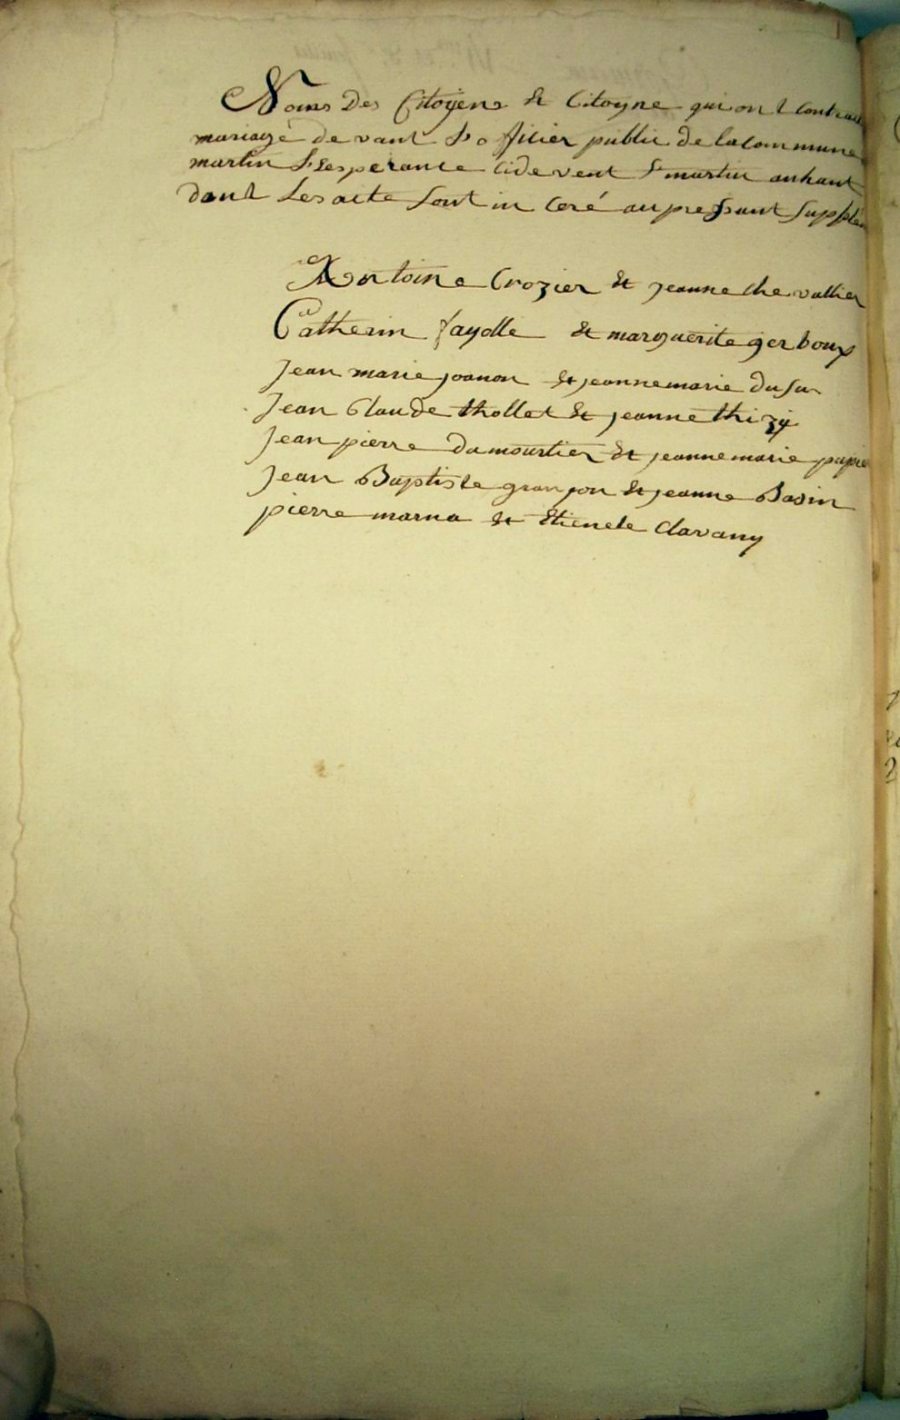 Noms Des Citoyens Et Citoyne qui ont Contrait
mariagé de vant L'officier public de la Commune
martin L'Esperance Cidevent St martin anhaut
dont Les acte Sont in Ceré au pressant Supplem
Antoine Crozier Et jeanne chevallier
Catherin fayolle Et marguerite gerboux
Jean marie joanon Et jeanne marie Dusu
Jean Claude thollet Et jeanne thizÿ
Jean pierre Damourtier Et jeanne marie papie
Jean Baptiste granjon Et jeanne Basin
pierre marna Et Etienete Clavany